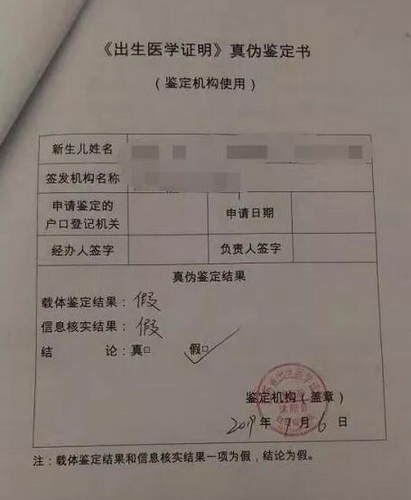 《出生医学证明》真伪鉴定书
（鉴定机构使用）
新生儿姓名
签发机构名称
申请鉴定的户口登记机关
申请日期
经办人签字
负责人签字
真伪鉴定结果
载体鉴定结果：假
信息核实结果：假
结 论：真□ 假□
鉴定机构（盖章）
2019年9月6日
注：载体鉴定结果和信息核实结果一项为假，结论为假。